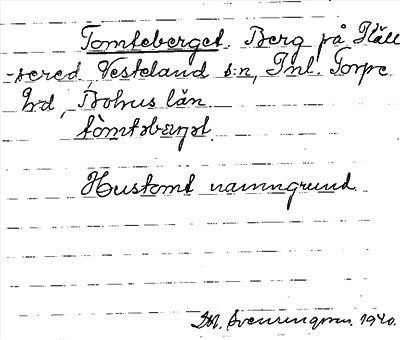 Tomteberget. Berg på Häll
-sered, Vesteland s:n, Inl. Torpe
hd, Bohus län.
tòmtəbærjət.
Hustomt namngrund.
M. Svenungsson. 1940.